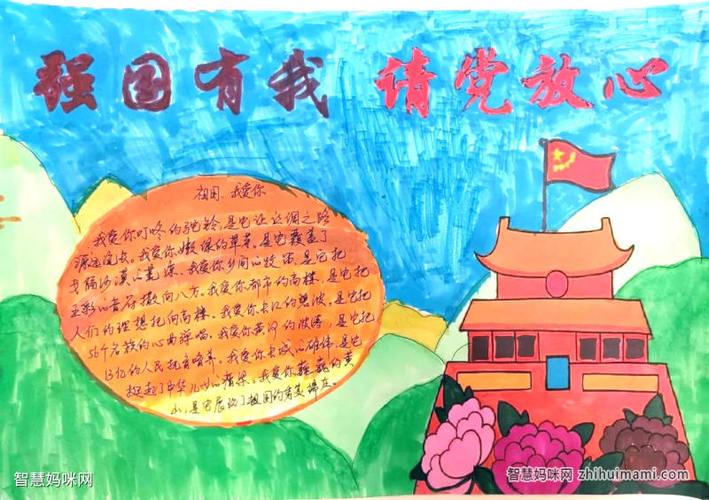 强国有我 请党放心
祖国，我爱你
我爱你叮咚的驼铃，是它让丝绸之路
源远流长。我爱你嫩绿的草芽，是它覆盖了
戈壁沙漠的荒凉。我爱你乡间的牧笛，是它把
五彩的音符撒向八方。我爱你都市的高楼，是它把
人们的理想托向高楼。我爱你长江的碧波，是它把
56个名族的心曲弹唱。我爱你黄河的波涛，是它把
13亿的人民托育喂养。我爱你长城的雄伟，是它
挺起了中华儿女的脊梁。我爱你巍峨的黄
山，是它展现了祖国的秀美端庄。
智慧妈咪网
智慧妈咪网 zhihuimami.com